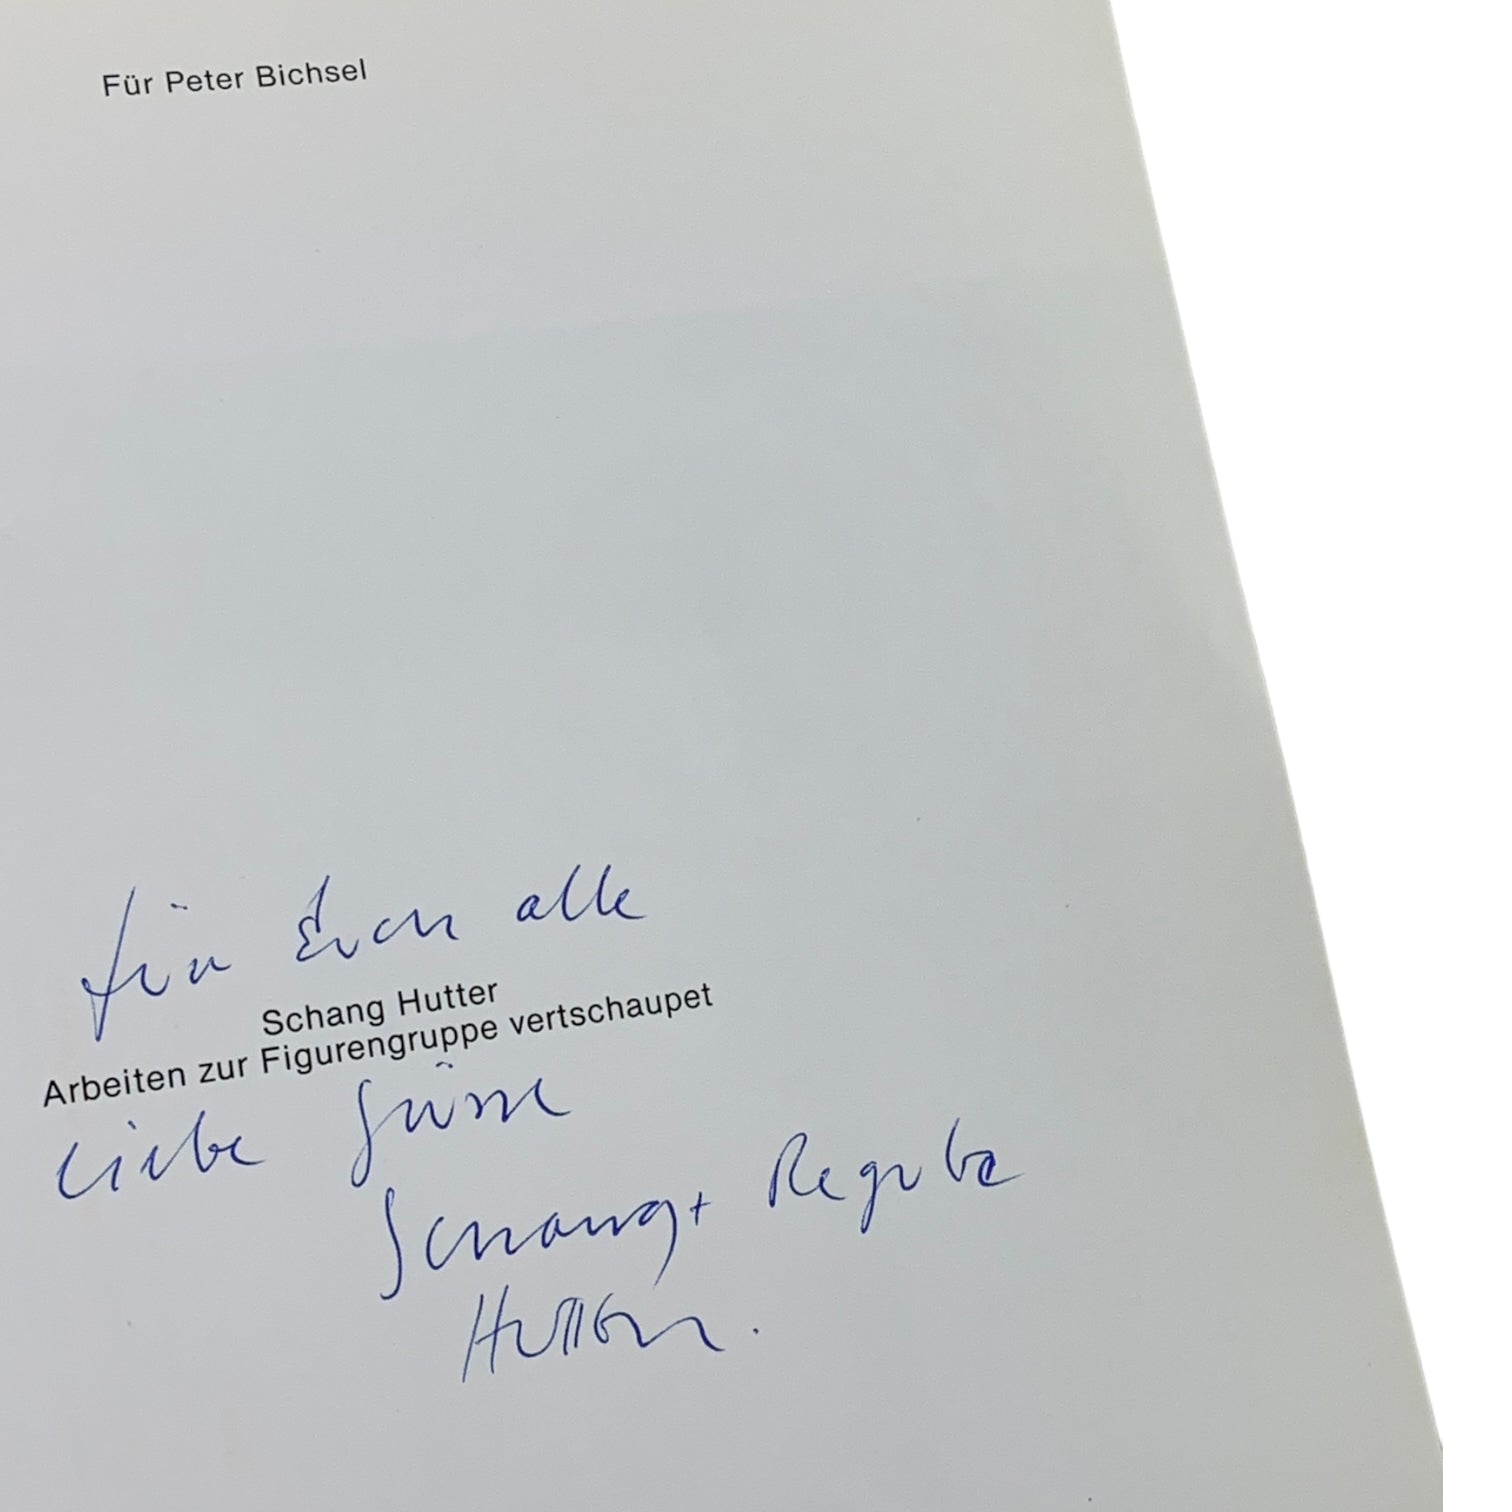 Für Peter Bichsel
für Euch alle
Schang Hutter
Arbeiten zur Figurengruppe vertschaupet
Liebe Grüsse
Schang + Regula
Hutter.